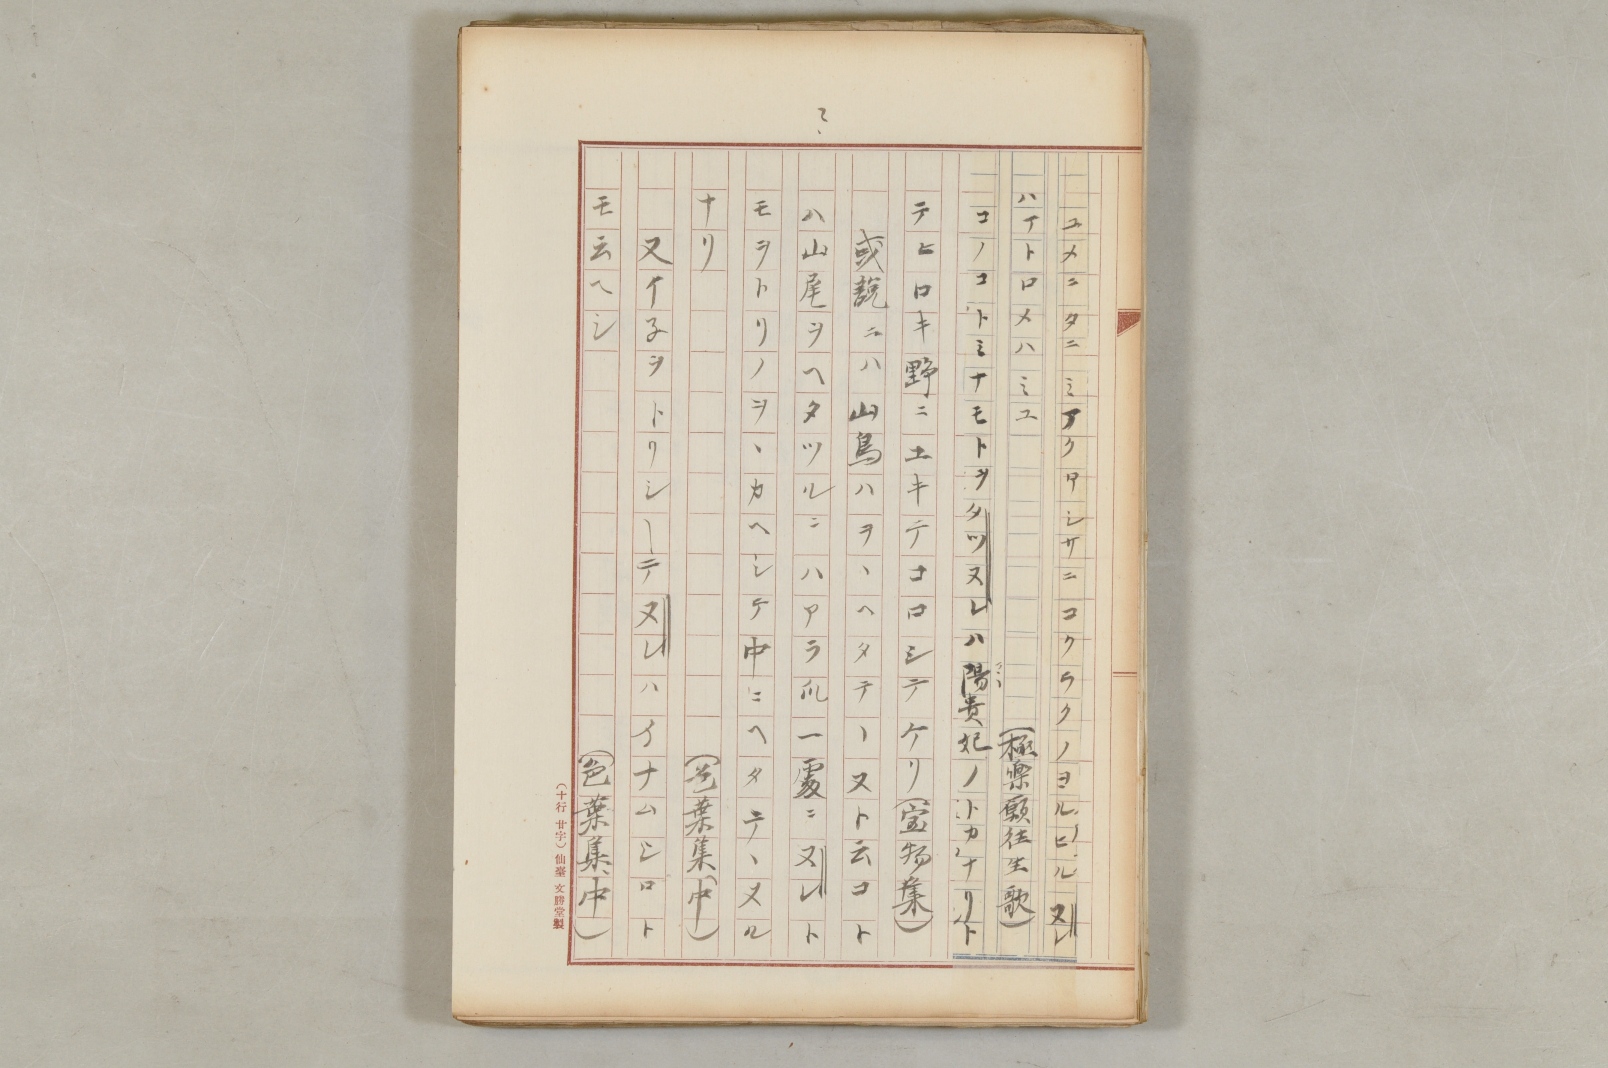 ユメニタニミアクヤシサニコクラクノヨルヒルヌレ
ハイトロメハミユ
(極楽願往生歌)
コノコトミナモトヲタツヌレハ陽貴妃ノトカナリト
テヒロキ野ニ土キテコロシテケリ(宝物集)
或説ニハ山鳥ハヲヽヘタテヽヌト云コト
ハ山尾ヲヘタツルニハアラ爪一處ニヌレト
モヲトリノヲヽカヘシケ中ニヘタテヽヌル
ナリ
(色葉集中)
又イ子ヲトリシーテヌレハイナムシロト
モ云ヘシ
(色葉集、中)
(十行 廿字)仙臺 文勝堂製